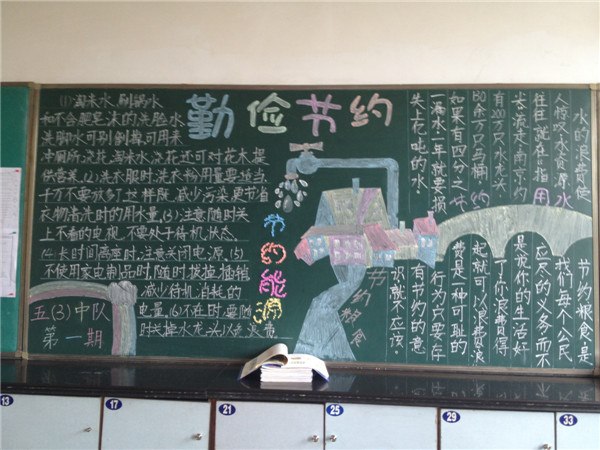 勤俭节约
(1)淘米水、刷锅水
和不含肥皂沫的洗脸水
洗脚水可别倒掉可用来
冲厕所浇花,淘米水,浇花还可对花木提
供营养(2)洗衣服时洗衣粉用量要适当,
千万不要放多了这样既减少污染更节省
衣物清洗时的用水量,(3)注意随时关
上不看的电视,不要处于待机状态。
(4.长时间离座时,注意关闭电源,(5)
不使用家电制品时,随时拔掉插销
减少待机消耗的
电量,(6)不在时,要随
时关掉水龙头
五(3)中队
第一期
节约能源
节约粮食
水的浪费使
人惊叹水资源
往往就在“指
尖流走”南京约
有200万只水龙头
150余万只马桶,
如果有四分之
一漏水一年就要损
失上亿吨的水
用水
节约粮食,是
我们每个公民
应尽的义务而不
是说你的生活好
了你浪费得
起就可以浪费浪
费是一种可耻的
行为只要存
有节约的意
识就不应该。
13
17
21
25
29
33